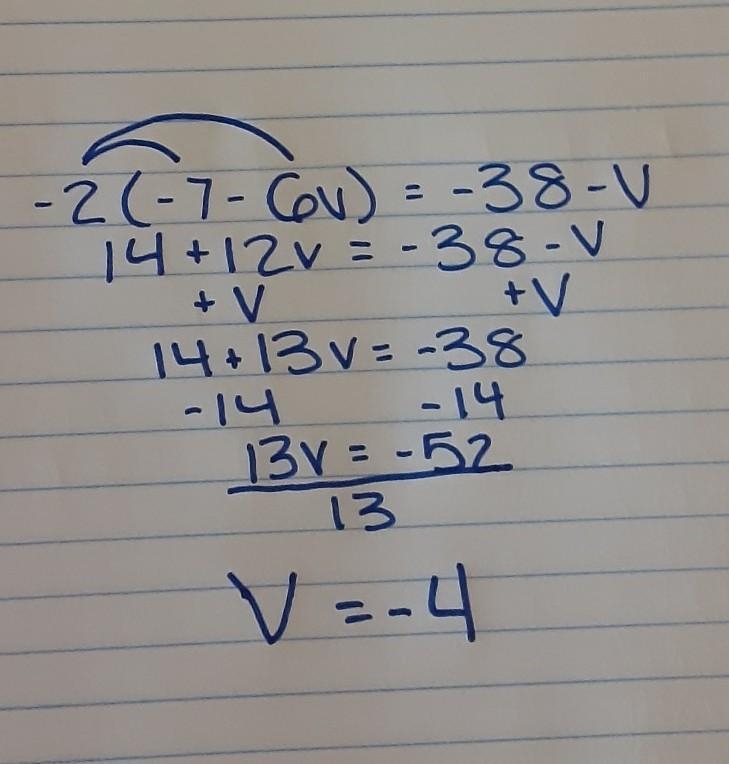 -2(-7-6v) = -38-V
14+12v = -38-V
+V +V
14+13v = -38
-14 -14
13v = -52
13
V = -4